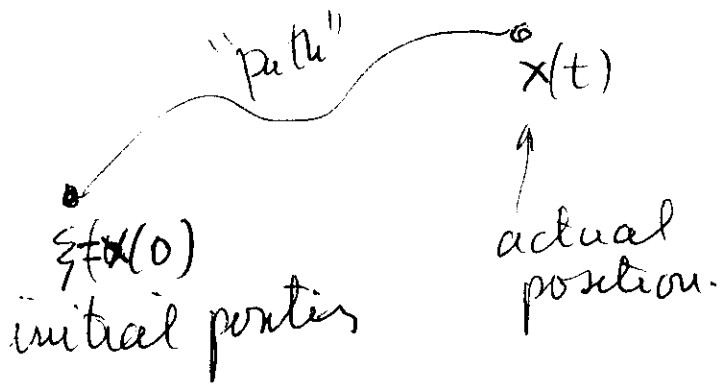 "path"
x(t)
ξ=x(0)
actual
position.
initial position